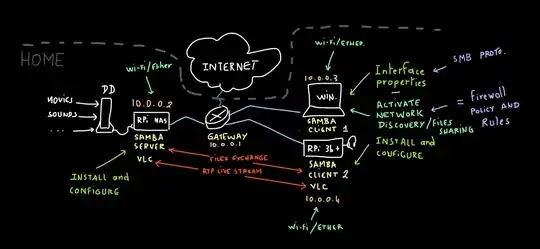 HOME
Wi-Fi/Ether
DD
MOVIES
SOUNDS
...
10.0.0.2
RPi NAS
SAMBA
SERVER
VLC
INSTALL and
CONFIGURE
INTERNET
GATEWAY
10.0.0.1
FILES EXCHANGE
RTP LIVE STREAM
Wi-Fi/ETHER.
10.0.0.3
WIN.
SAMBA
CLIENT 1
RPi 3b+
SAMBA
CLIENT 2
VLC
10.0.0.4
Wi-Fi/ETHER
Interface
properties
SMB PROTO.
ACTIVATE
NETWORK
DISCOVERY/FILES
SHARING
= Firewall
POLICY AND
Rules
INSTALL and
CONFIGURE